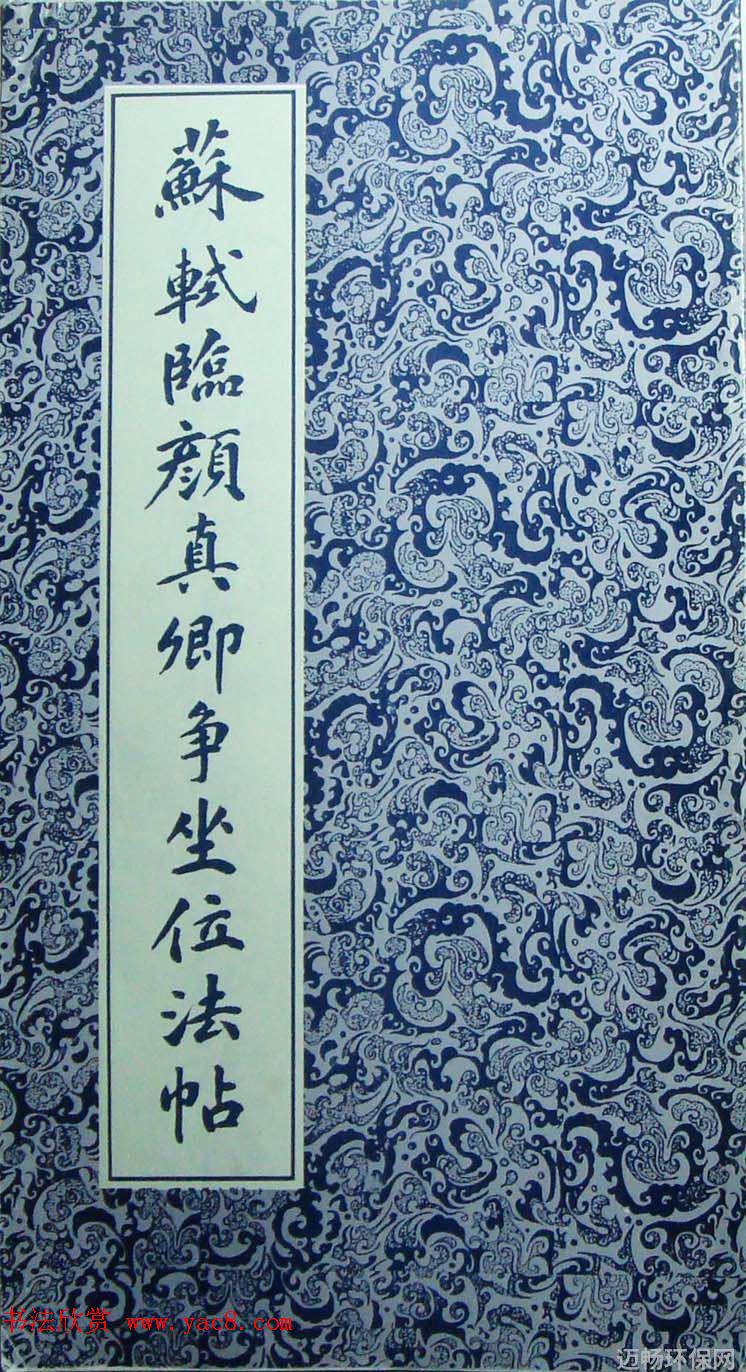 蘇軾臨顔真卿争坐位法帖
书法欣赏 www.yac8.com
迈畅环保网